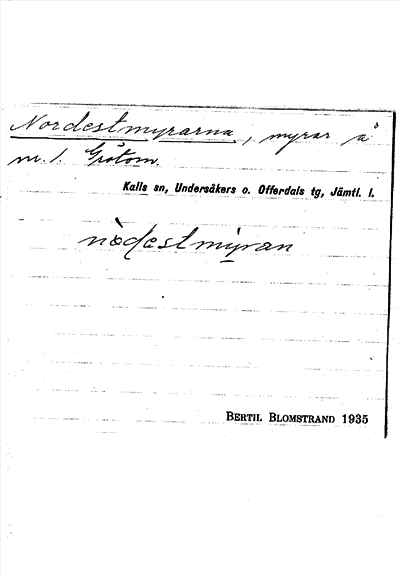 Nordestmyrarna, myrar å
nr. 1. Grötom.
Kalls sn, Undersåkers o. Offerdals tg, Jämtl. l.
nòdestmyran
BERTIL BLOMSTRAND 1935